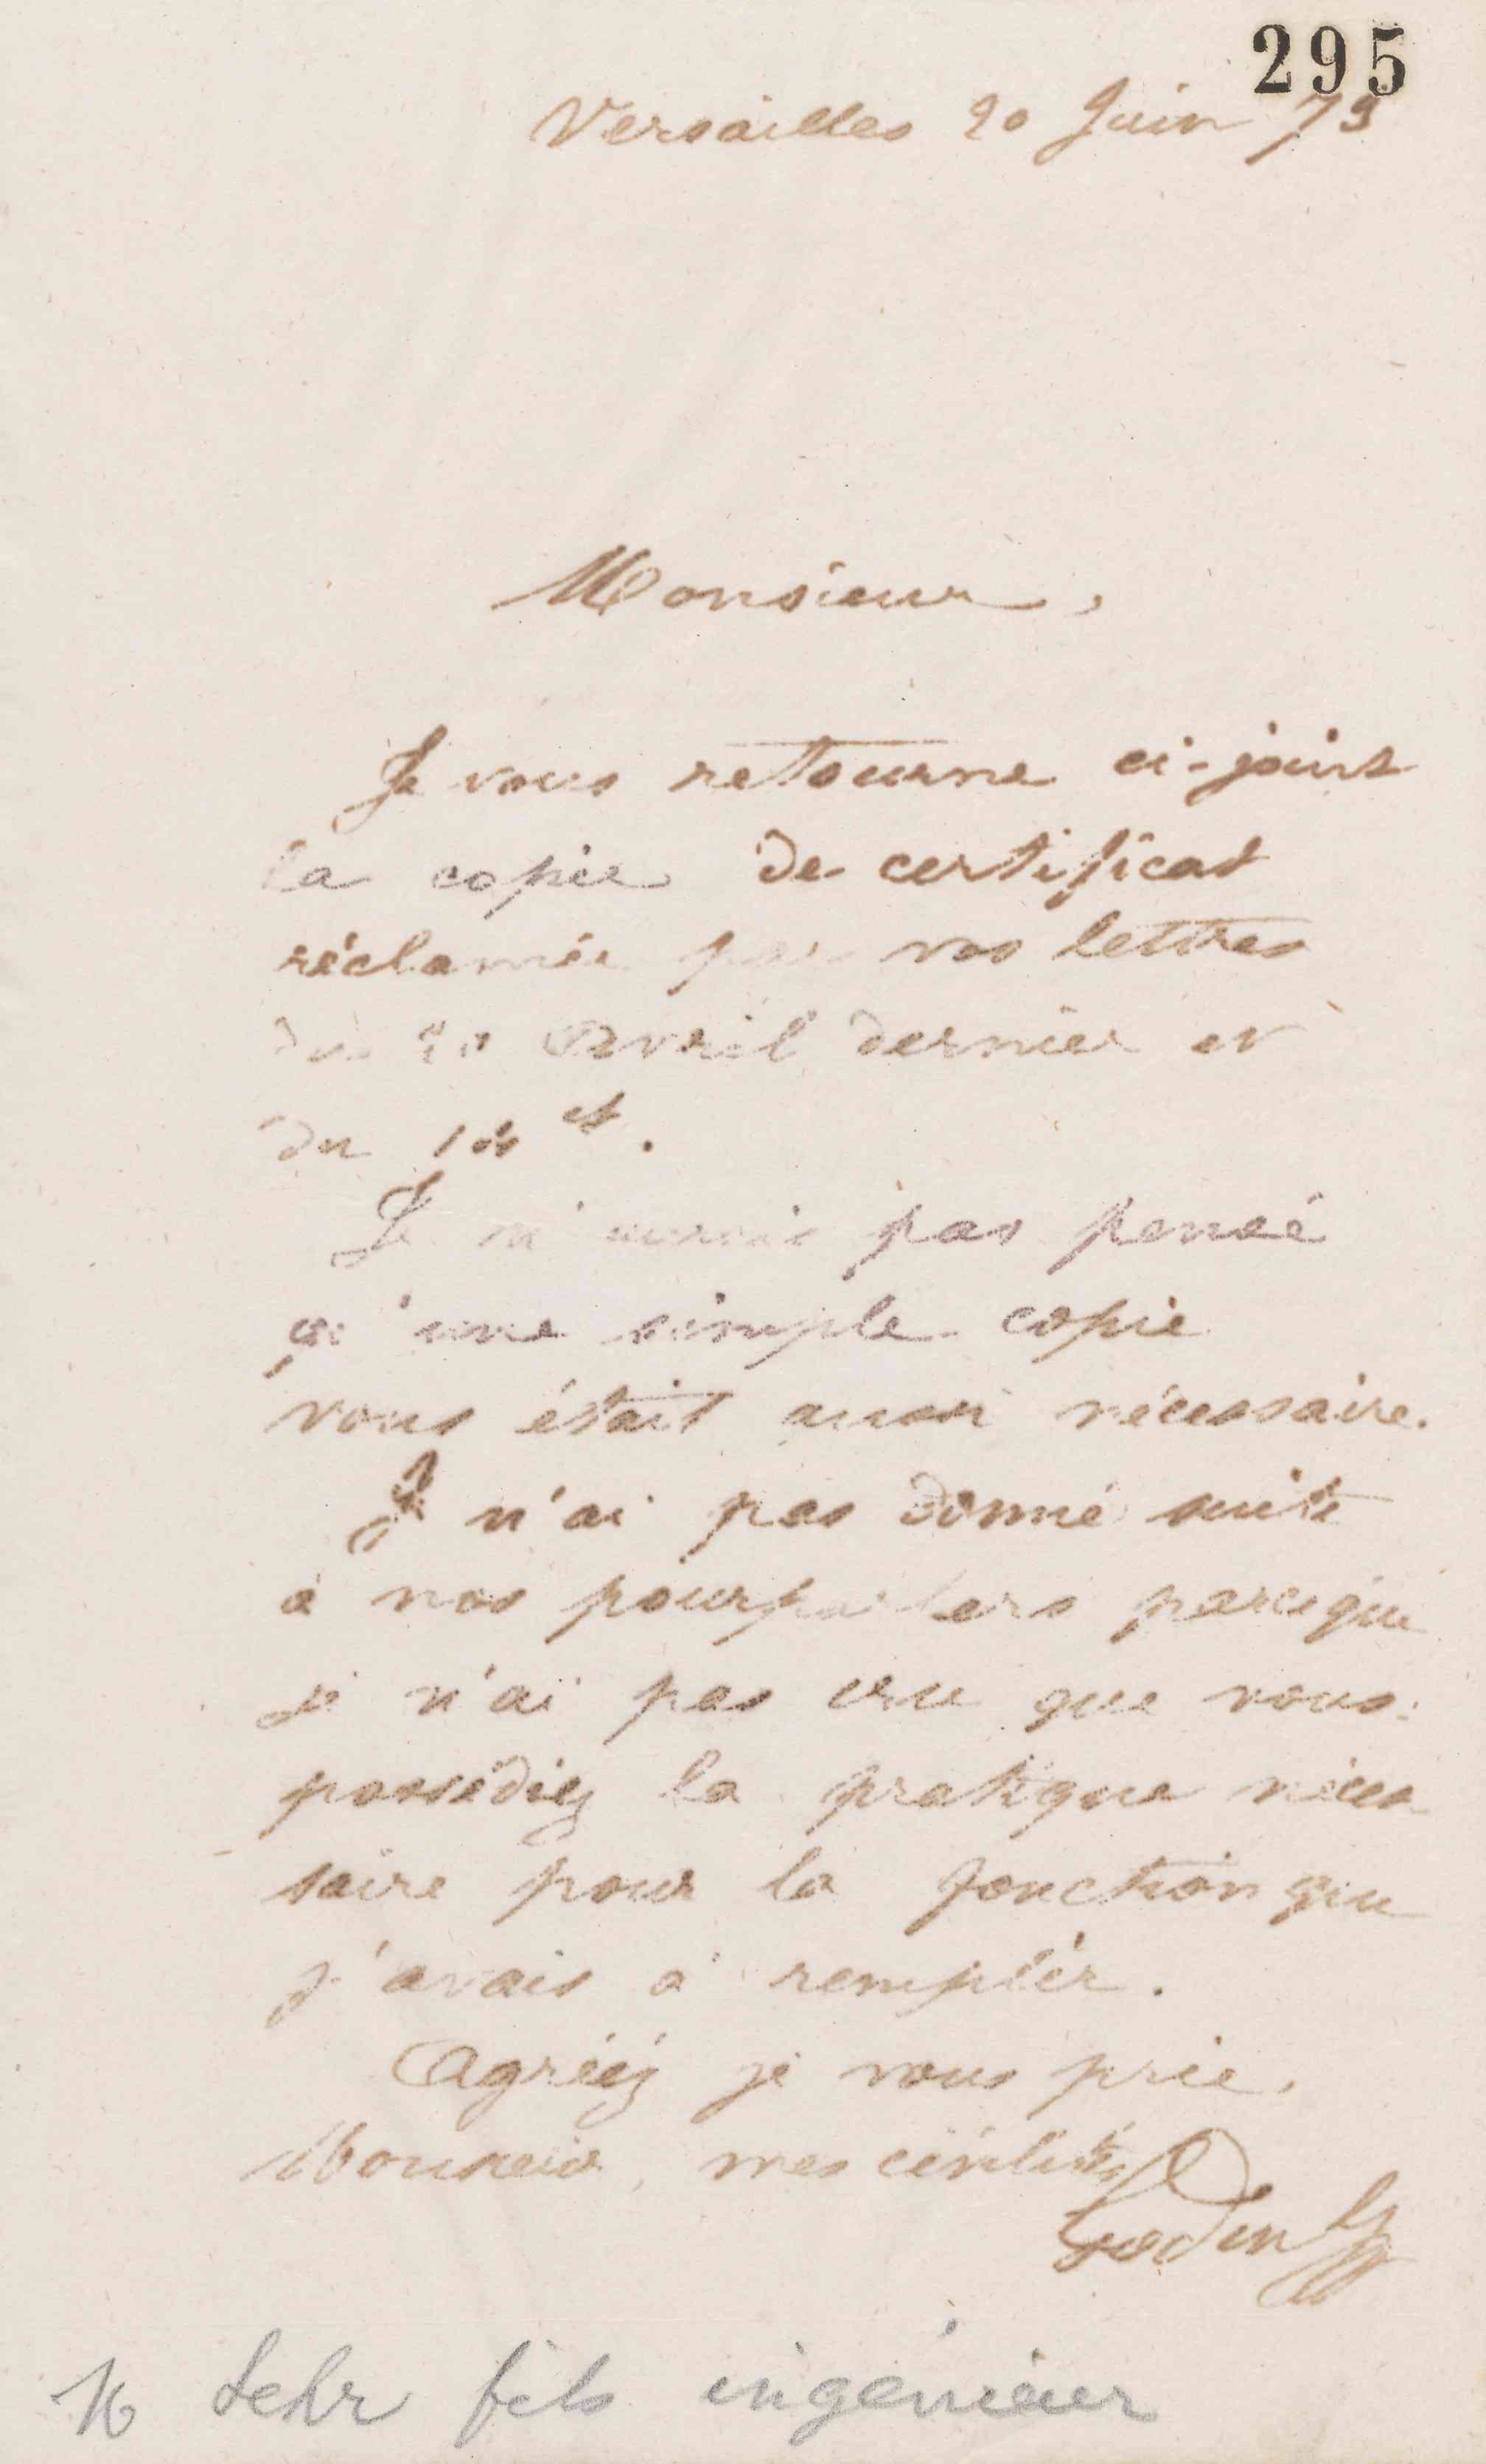 295
Versailles 20 Juin 73
Monsieur,
Je vous retourne ci-joint
la copie de certificat
réclamée par vos lettres
du 20 avril dernier et
du ct.
Je n'aurais pas pensé
qu'une simple copie
vous était aussi nécessaire.
Je n'ai pas donné suite
à nos pourparlers parceque
je n'ai pas cru que vous
possédiez la pratique néces
saire pour la fonction que
j'avais à remplir.
Agréez je vous prie,
Monsieur, mes civilités
Godin
M Sehr fils ingénieur